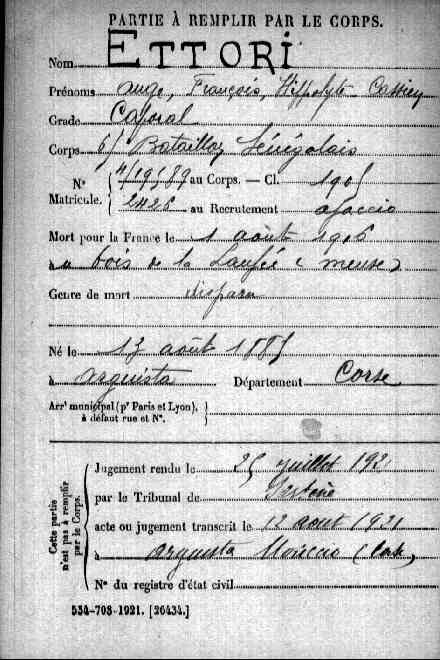 PARTIE À REMPLIR PAR LE CORPS.
Nom ETTORI
Prénoms Ange, François, Hippolyte Cassien
Grade Caporal
Corps 61e Bataillon Sénégalais
N° Matricule. 4/19589 au Corps. — Cl. 1905
2426 au Recrutement ajaccio
Mort pour la France le 1 août 1916
à Bois de la Laufée (meuse)
Genre de mort disparu
Né le 13 août 1885
à arguista Département Corse
Arrt municipal (pr Paris et Lyon), à défaut rue et N°.
Cette partie n'est pas à remplir par le Corps.
Jugement rendu le 25 juillet 1921
par le Tribunal de Sartène
acte ou jugement transcrit le 12 aout 1921
à arguista Moriccio
N° du registre d'état civil
534-708-1921. [26434.]